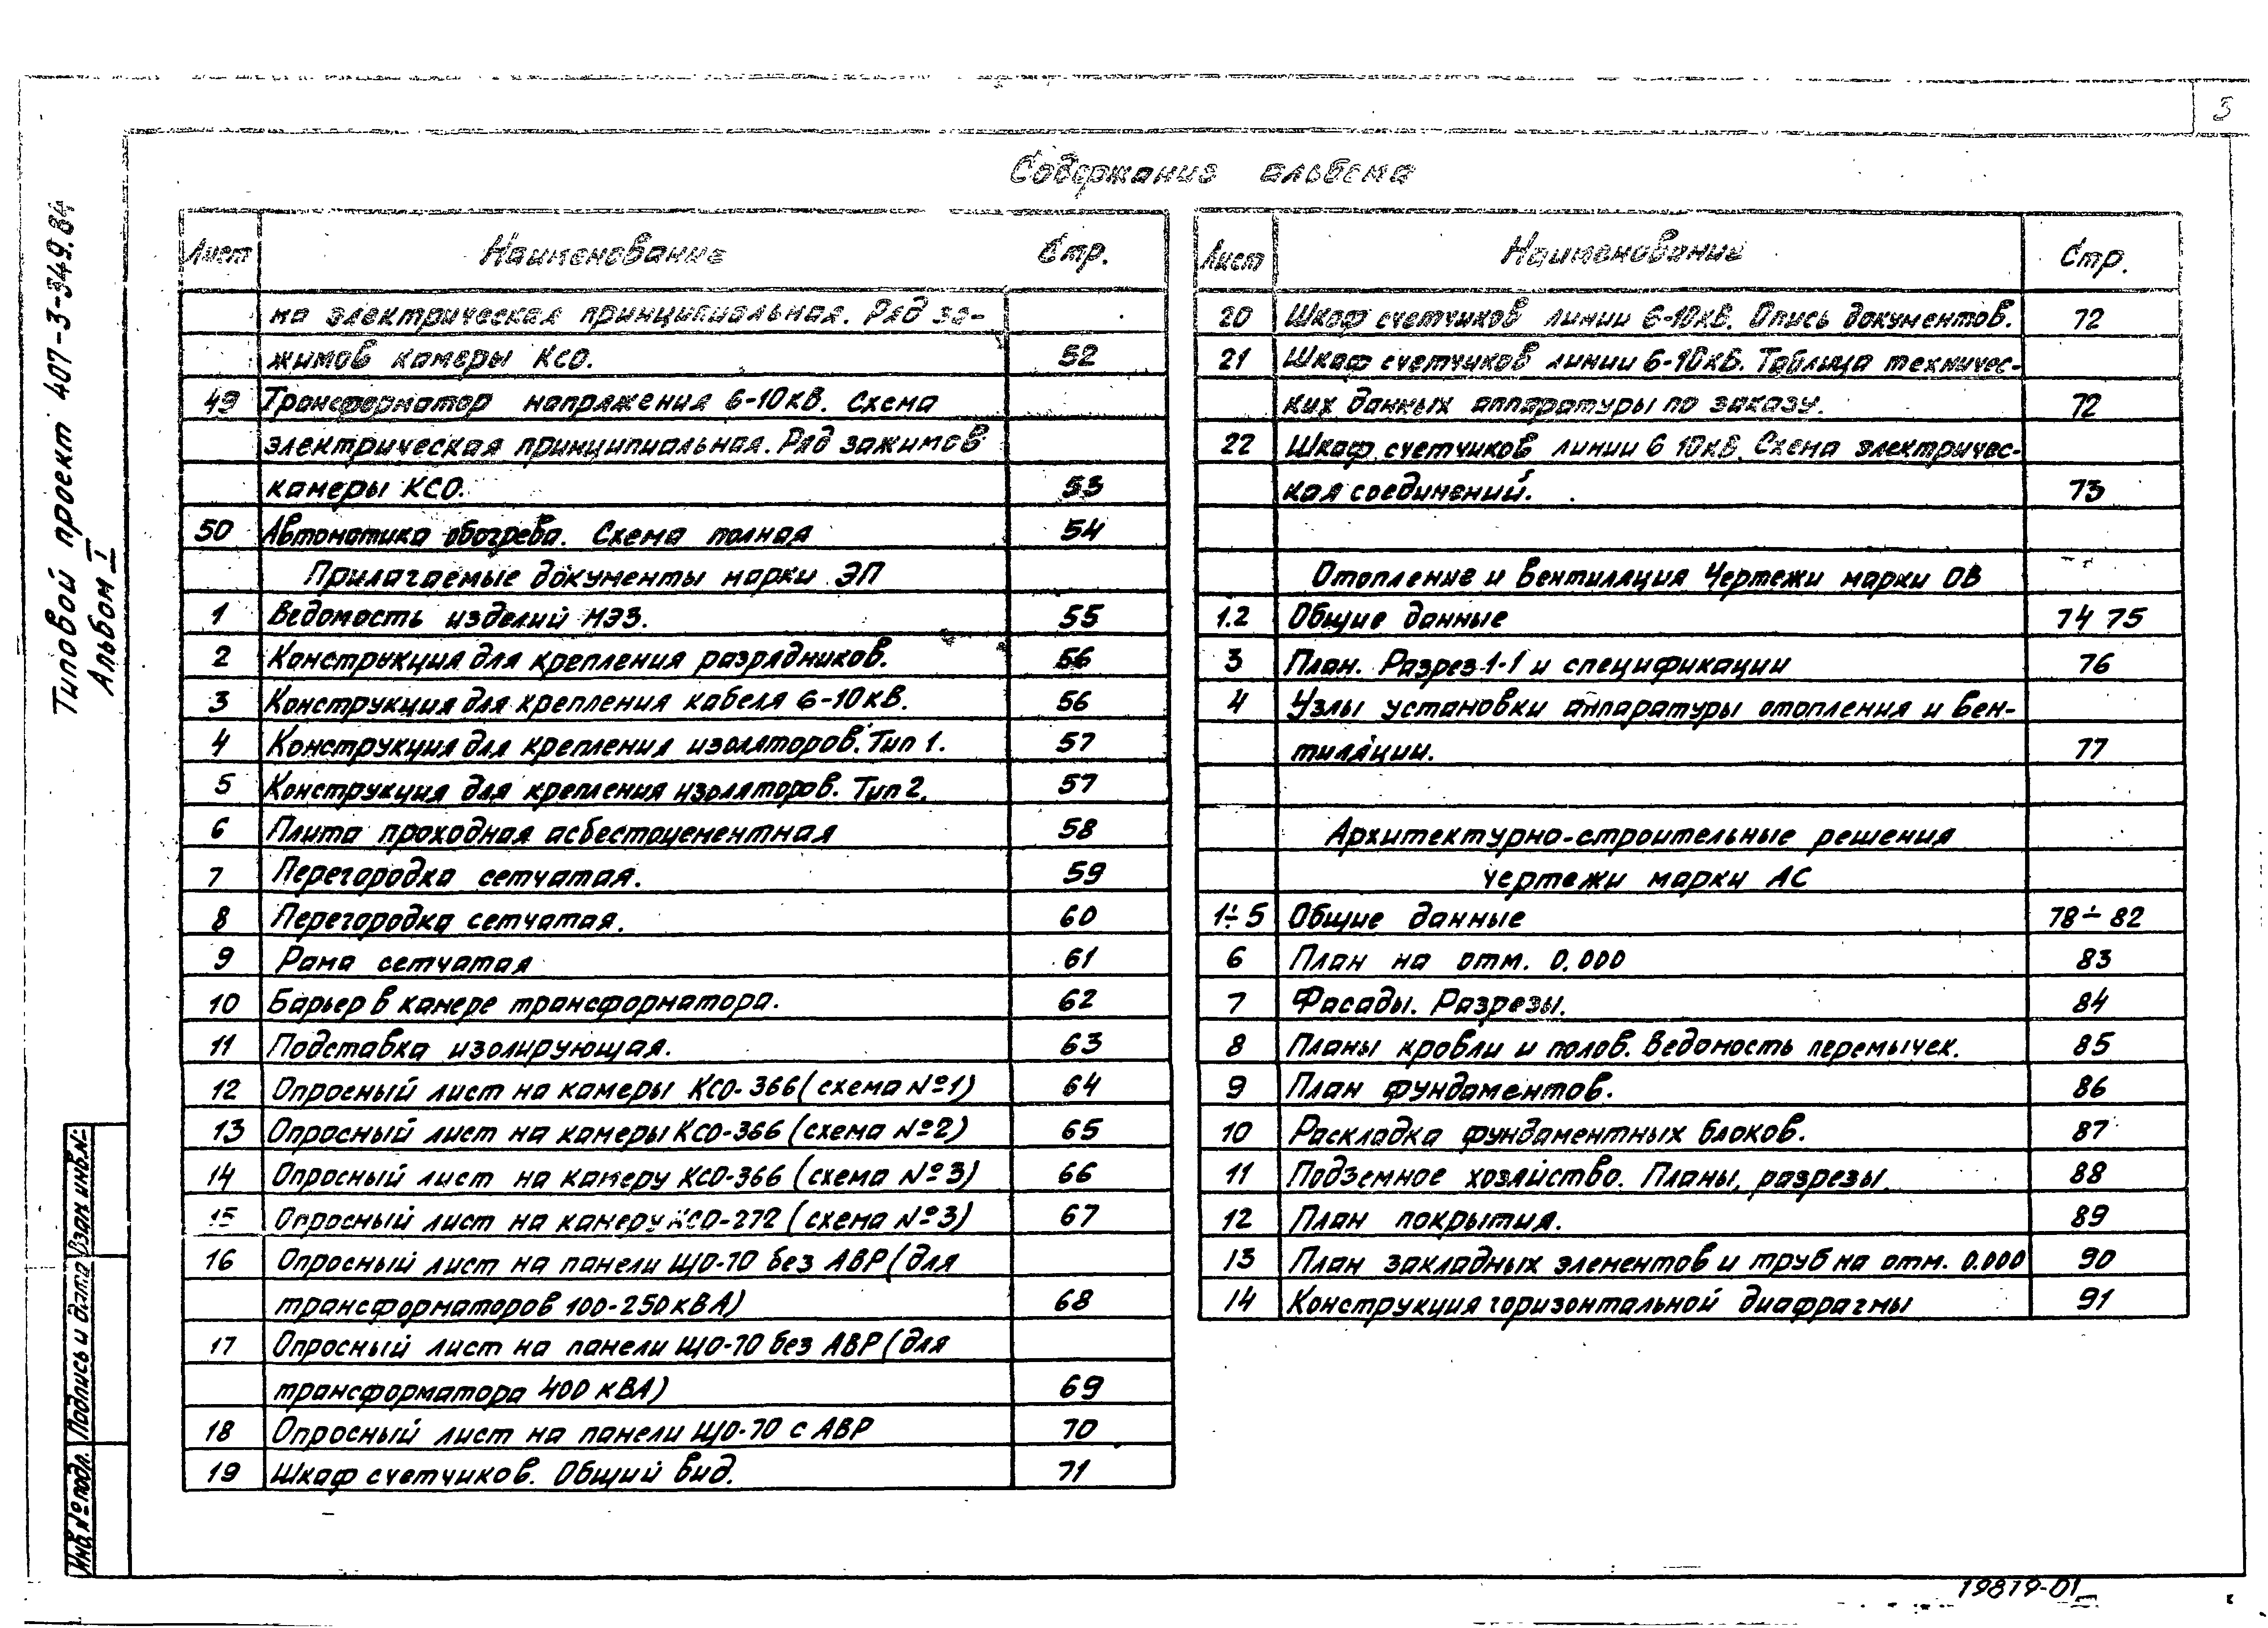 3
Типовой проект 407-3-349.84
Альбом I
Содержание альбома
Лист Наименование Стр.
ма электрическая принципиальная. Ряд за-
жимов камеры КСО. 52
49 Трансформатор напряжения 6-10кВ. Схема
электрическая принципиальная. Ряд зажимов
камеры КСО. 53
50 Автоматика обогрева. Схема полная 54
Прилагаемые документы марки ЭП
1 Ведомость изделий МЭЗ. 55
2 Конструкция для крепления разрядников. 56
3 Конструкция для крепления кабеля 6-10кВ. 56
4 Конструкция для крепления изоляторов. Тип 1. 57
5 Конструкция для крепления изоляторов. Тип 2. 57
6 Плита проходная асбестоцементная 58
7 Перегородка сетчатая. 59
8 Перегородка сетчатая. 60
9 Рама сетчатая 61
10 Барьер в камере трансформатора. 62
11 Подставка изолирующая. 63
12 Опросный лист на камеры КСО-366 (схема №1) 64
13 Опросный лист на камеры КСО-366 (схема №2) 65
14 Опросный лист на камеру КСО-366 (схема №3) 66
15 Опросный лист на камеру КСО-272 (схема №3) 67
16 Опросный лист на панели ЩО-70 без АВР (для
трансформаторов 100-250кВА) 68
17 Опросный лист на панели ЩО-70 без АВР (для
трансформатора 400 кВА) 69
18 Опросный лист на панели ЩО-70 с АВР 70
19 Шкаф счетчиков. Общий вид. 71
Лист Наименование Стр.
20 Шкаф счетчиков линии 6-10кВ. Опись документов. 72
21 Шкаф счетчиков линии 6-10кВ. Таблица техничес-
ких данных аппаратуры по заказу. 72
22 Шкаф счетчиков линии 6 10кВ. Схема электричес-
кая соединений. 73
Отопление и вентиляция Чертежи марки ОВ
1.2 Общие данные 74 75
3 План. Разрез 1-1 и спецификации 76
4 Узлы установки аппаратуры отопления и вен-
тиляции. 77
Архитектурно-строительные решения
чертежи марки АС
1÷5 Общие данные 78÷82
6 План на отм. 0.000 83
7 Фасады. Разрезы. 84
8 Планы кровли и полов. Ведомость перемычек. 85
9 План фундаментов. 86
10 Раскладка фундаментных блоков. 87
11 Подземное хозяйство. Планы, разрезы. 88
12 План покрытия. 89
13 План закладных элементов и труб на отм. 0.000 90
14 Конструкция горизонтальной диафрагмы 91
Инв.№ подл. Подпись и дата Взам инв.№
19879-01